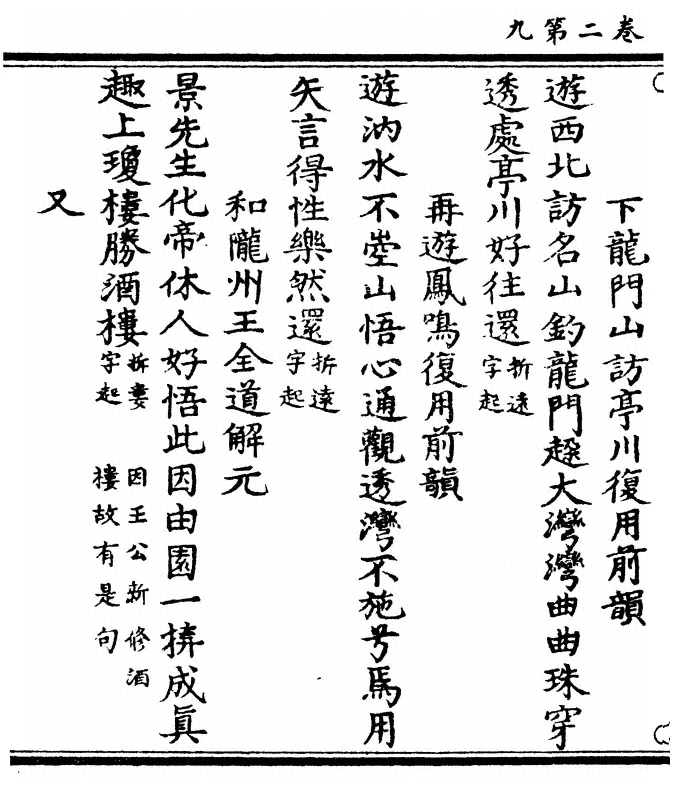 九第二卷
下龍門山訪亭川復用前韻
遊西北訪名山釣龍門趂大灣灣曲曲珠穿
透處亭川好往還折遠字起
再遊鳳鳴復用前韻
遊汭水不崆山悟心通觀透灣不施号焉用
矢言得性樂然還折遠字起
和隴州王全道解元
景先生化帝休人好悟此因由園一㨂成眞
趣上瓊樓勝酒樓折妻字起 因王公新修酒樓故有是句
又